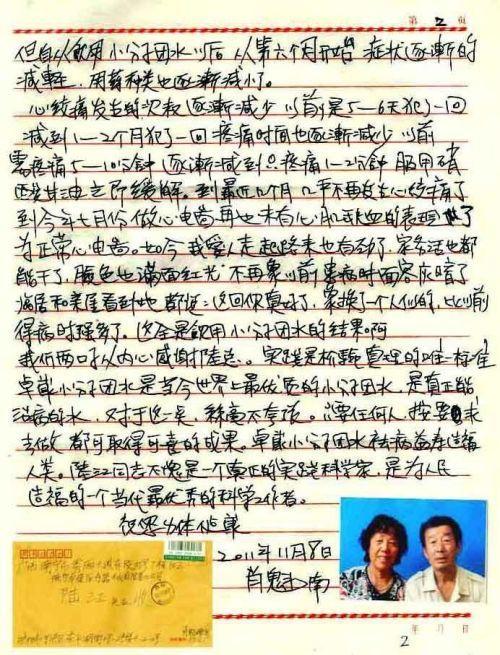 第 2 页
但自从饮用小分子团水以后 从第六个月开始 症状逐渐的
减轻，用药种类也逐渐减小了。
心绞痛发生的次数逐渐减少 以前是5—6天犯了一回
减到1—2个月犯了一回 疼痛时间也逐渐减少 以前
需疼痛5—10分钟 逐渐减到只疼痛1—2分钟 服用硝
甘油立即缓解。到最近几个月 几乎不再发生心绞痛了
到今年七月份做心电图再也未有心肌缺血的表现
为正常心电图。如今我爱人走起路来也有劲了，家务活也都
能干了，脸色也满面红光 不再象以前患病时面容灰暗了
邻居和亲属看到她都说：这回你真好了，象换了一个人似的，比以前
得病时强多了。这全是饮用小分子团水的结果啊
我们两口子从内心感谢陆总。实践是检验真理的唯一标准
卓康小分子团水是当今世界上最优质的小分子团水，是真正能
治病的水，对于这一点，丝毫不夸张。只要任何人，按要求
去做都可取得可喜的成果。卓康小分子团水祛病益寿造福
人类。陆江同志不愧是一个真正的实践科学家，是为人民
造福的一个当代最优秀的科学工作者。
祝您身体健康
2011年11月8日
肖
陆江
年 月 日
2